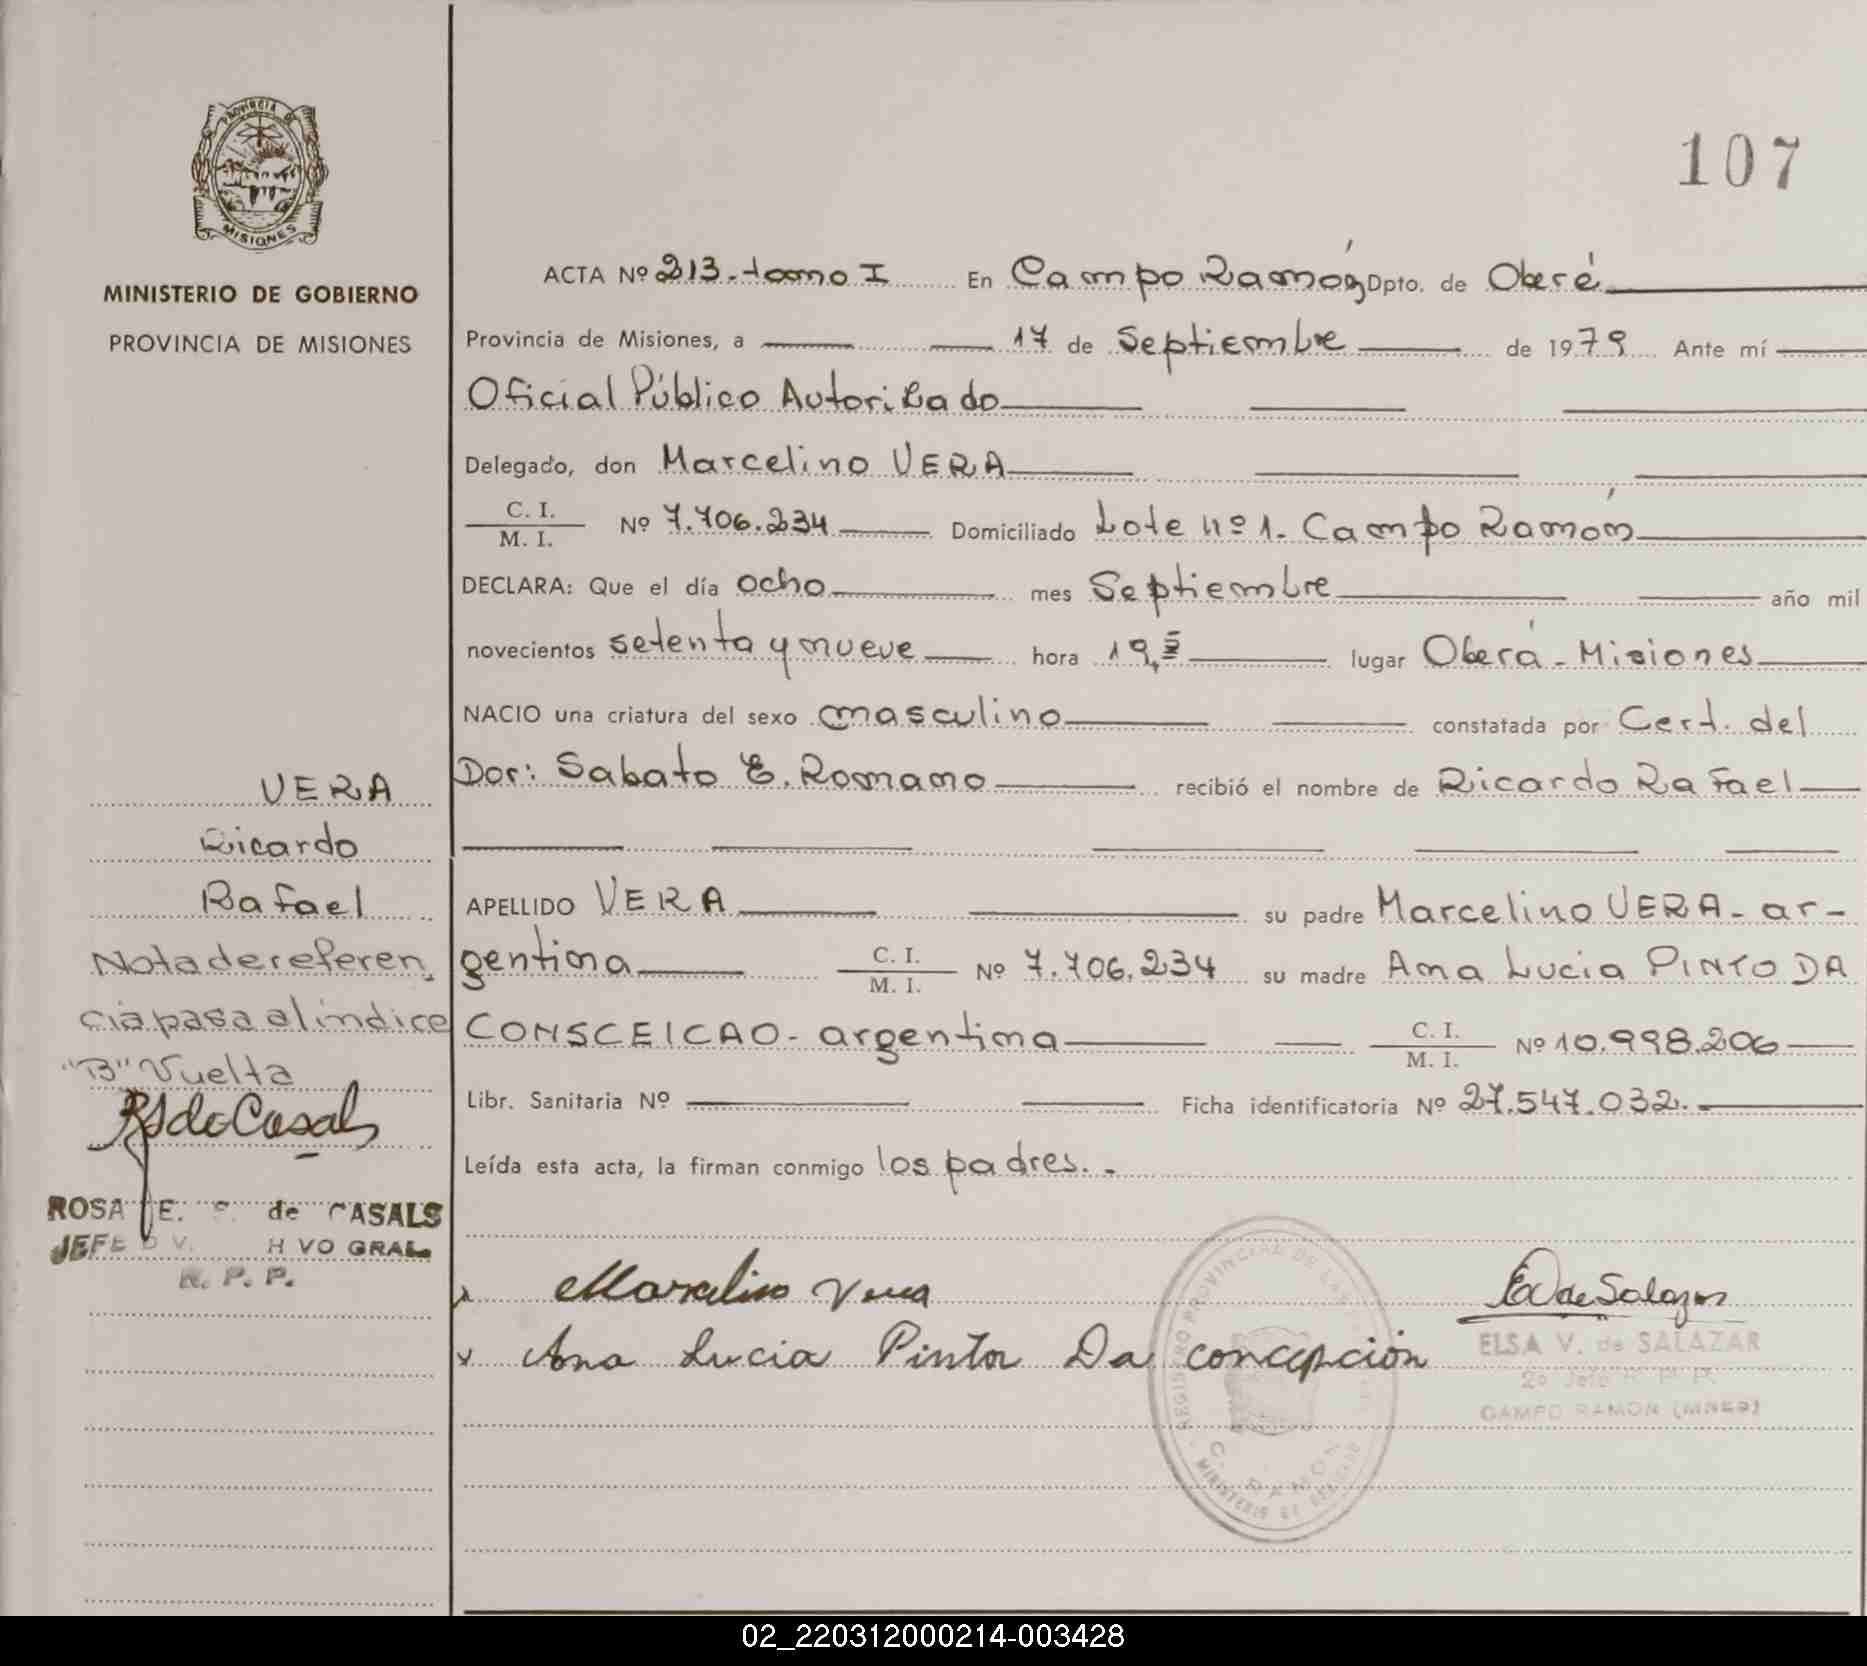 PROVINCIA DE
MISIONES
MINISTERIO DE GOBIERNO
PROVINCIA DE MISIONES
107
ACTA Nº 213-tomo I En Campo Ramón Dpto. de Oberá
Provincia de Misiones, a 17 de Septiembre de 1979 Ante mí
Oficial Público Autorizado
Delegado, don Marcelino VERA
C. I.
M. I.
Nº 7.706.234 Domiciliado Lote nº 1. Campo Ramón
DECLARA: Que el día ocho mes Septiembre año mil
novecientos setenta y nueve hora 19, lugar Oberá - Misiones
NACIO una criatura del sexo masculino constatada por Cert. del
Dor: Sabato E. Romano recibió el nombre de Ricardo Rafael
APELLIDO VERA su padre Marcelino VERA - ar-
gentina C. I. M. I. Nº 7.706.234 su madre Ana Lucia PINTO DA
CONSCEICAO - argentina C. I. M. I. Nº 10.998.206
Libr. Sanitaria Nº Ficha identificatoria Nº 27.547.032.-
Leída esta acta, la firman conmigo los padres.-
VERA
Ricardo
Rafael
Nota de referen
cia pasa al indice
"B" Vuelta
RS de Casals
ROSA E. de CASALS
JEFE GRAL.
R. P. P.
x Marcelino Vera
x Ana Lucia Pinto Da concepción
EV de Salazar
ELSA V. de SALAZAR
2º Jefe R. P. P.
CAMPO RAMON (MNES)
REGISTRO PROVINCIAL DE LAS
C. RAMON
MINISTERIO DE GOBIERNO
02_220312000214-003428